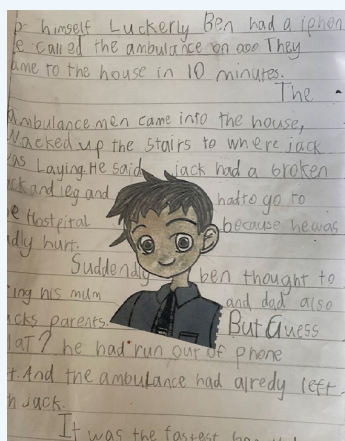 himself Luckerly Ben had a iphon
called the ambulance on 000 They
ame to the house in 10 minutes.
The
Ambulance men came into the house,
up the stairs to where jack
as Laying. He said jack had a broken
and leg and had to go to
e Hostpiral because he was
dly hurt.
Suddendly ben thought to
ing his mum and dad also
cks parents. But Guess
at? he had run out of phone
t. And the ambulance had alredy left
h Jack.
It was the fastest